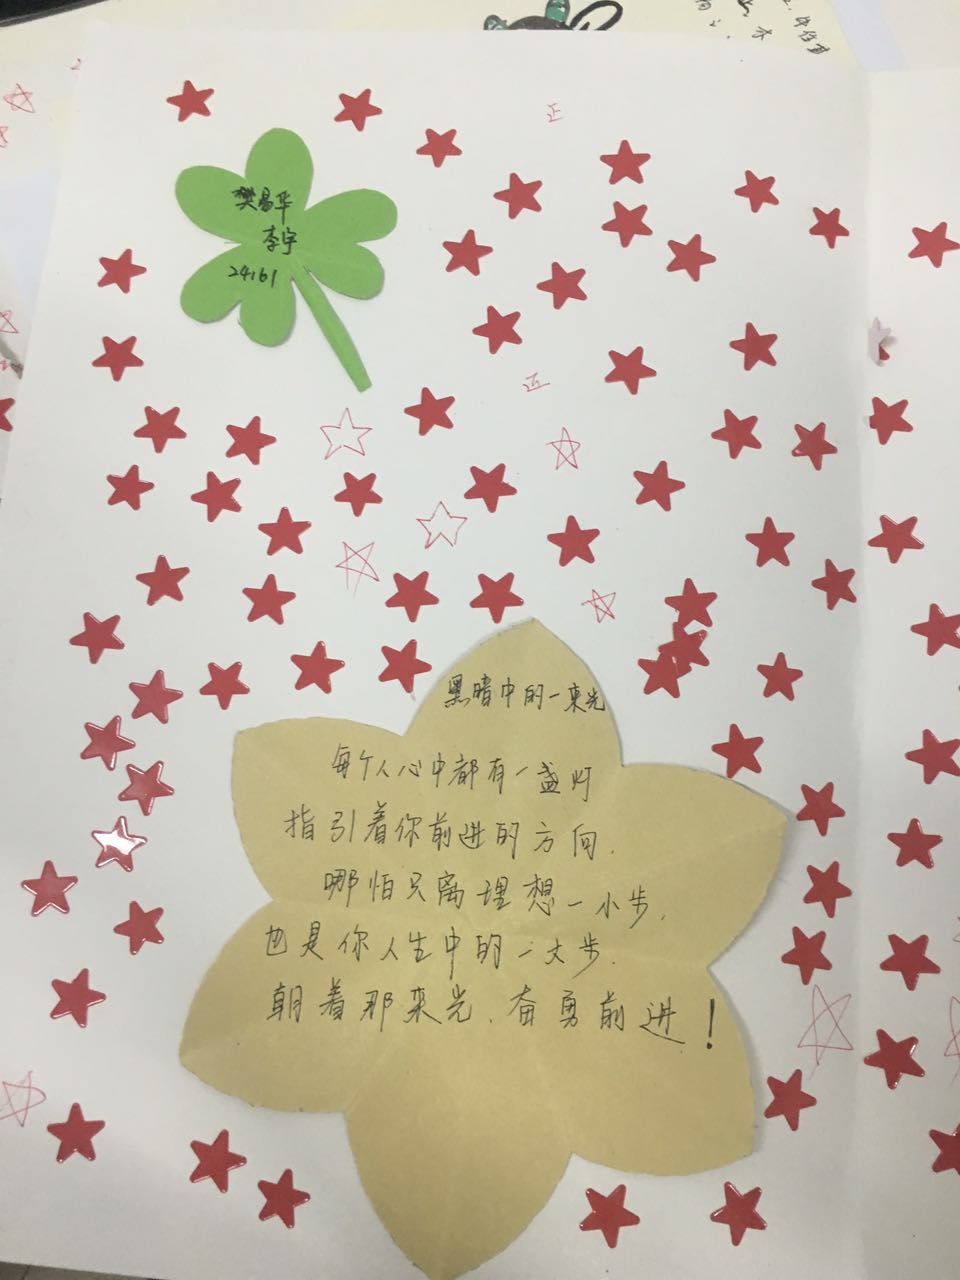 正
樊易华
李宇
24161
正
黑暗中的一束光
每个人心中都有一盏灯
指引着你前进的方向.
哪怕只离理想一小步,
也是你人生中的一大步.
朝着那束光、奋勇前进!